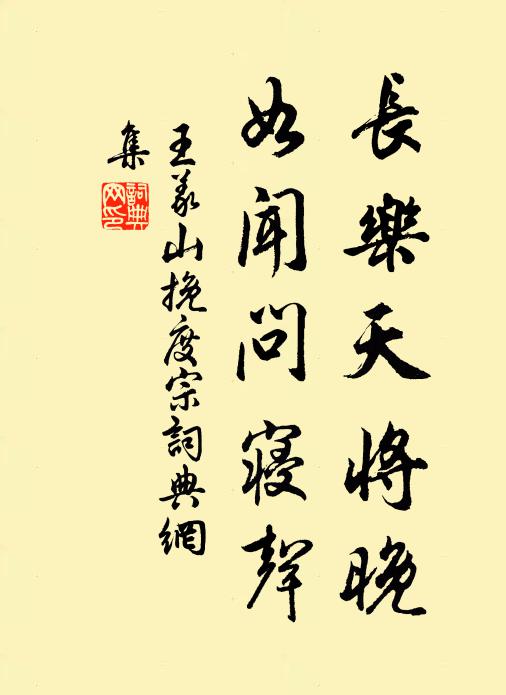 長樂天將晚
如聞問寢聲
王義山挽度宗詞典網
集
詞典
网印